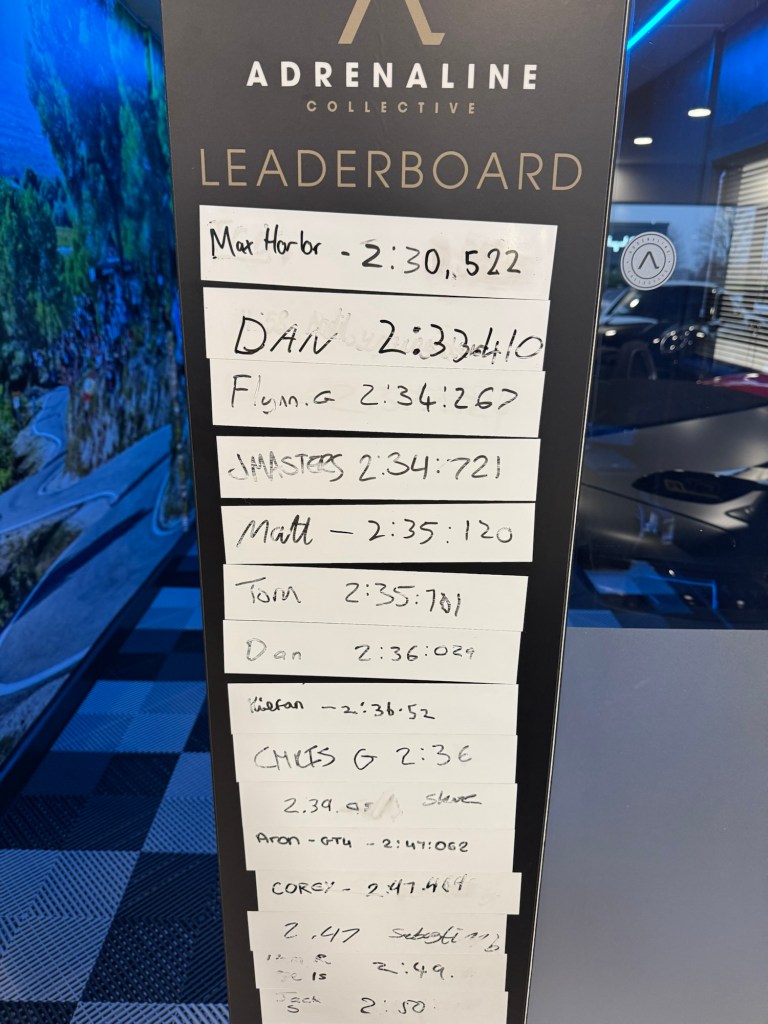 ADRENALINE
COLLECTIVE
LEADERBOARD
Max Harbr - 2:30,522
DAN 2:33.410
Flynn.G 2:34:267
JMASTERS 2:34:721
Matt - 2:35:120
Tom 2:35:701
Dan 2:36:029
Kieran - 2:36.52
CHRIS G 2:36
2.39. Steve
Aron - GT4 - 2:47:062
COREY - 2.47.464
2.47
2:49.
Jack S 2:50